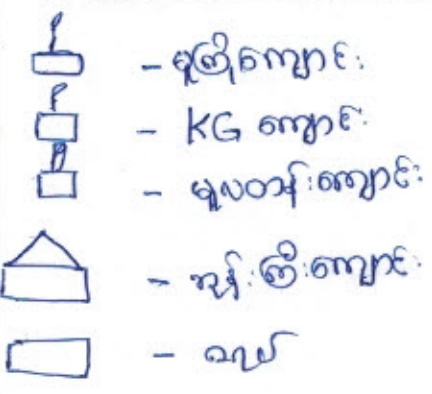 - မူကြိုကျောင်း
- KG ကျောင်း
- မူလတန်းကျောင်း
- ဘုန်းကြီးကျောင်း
-